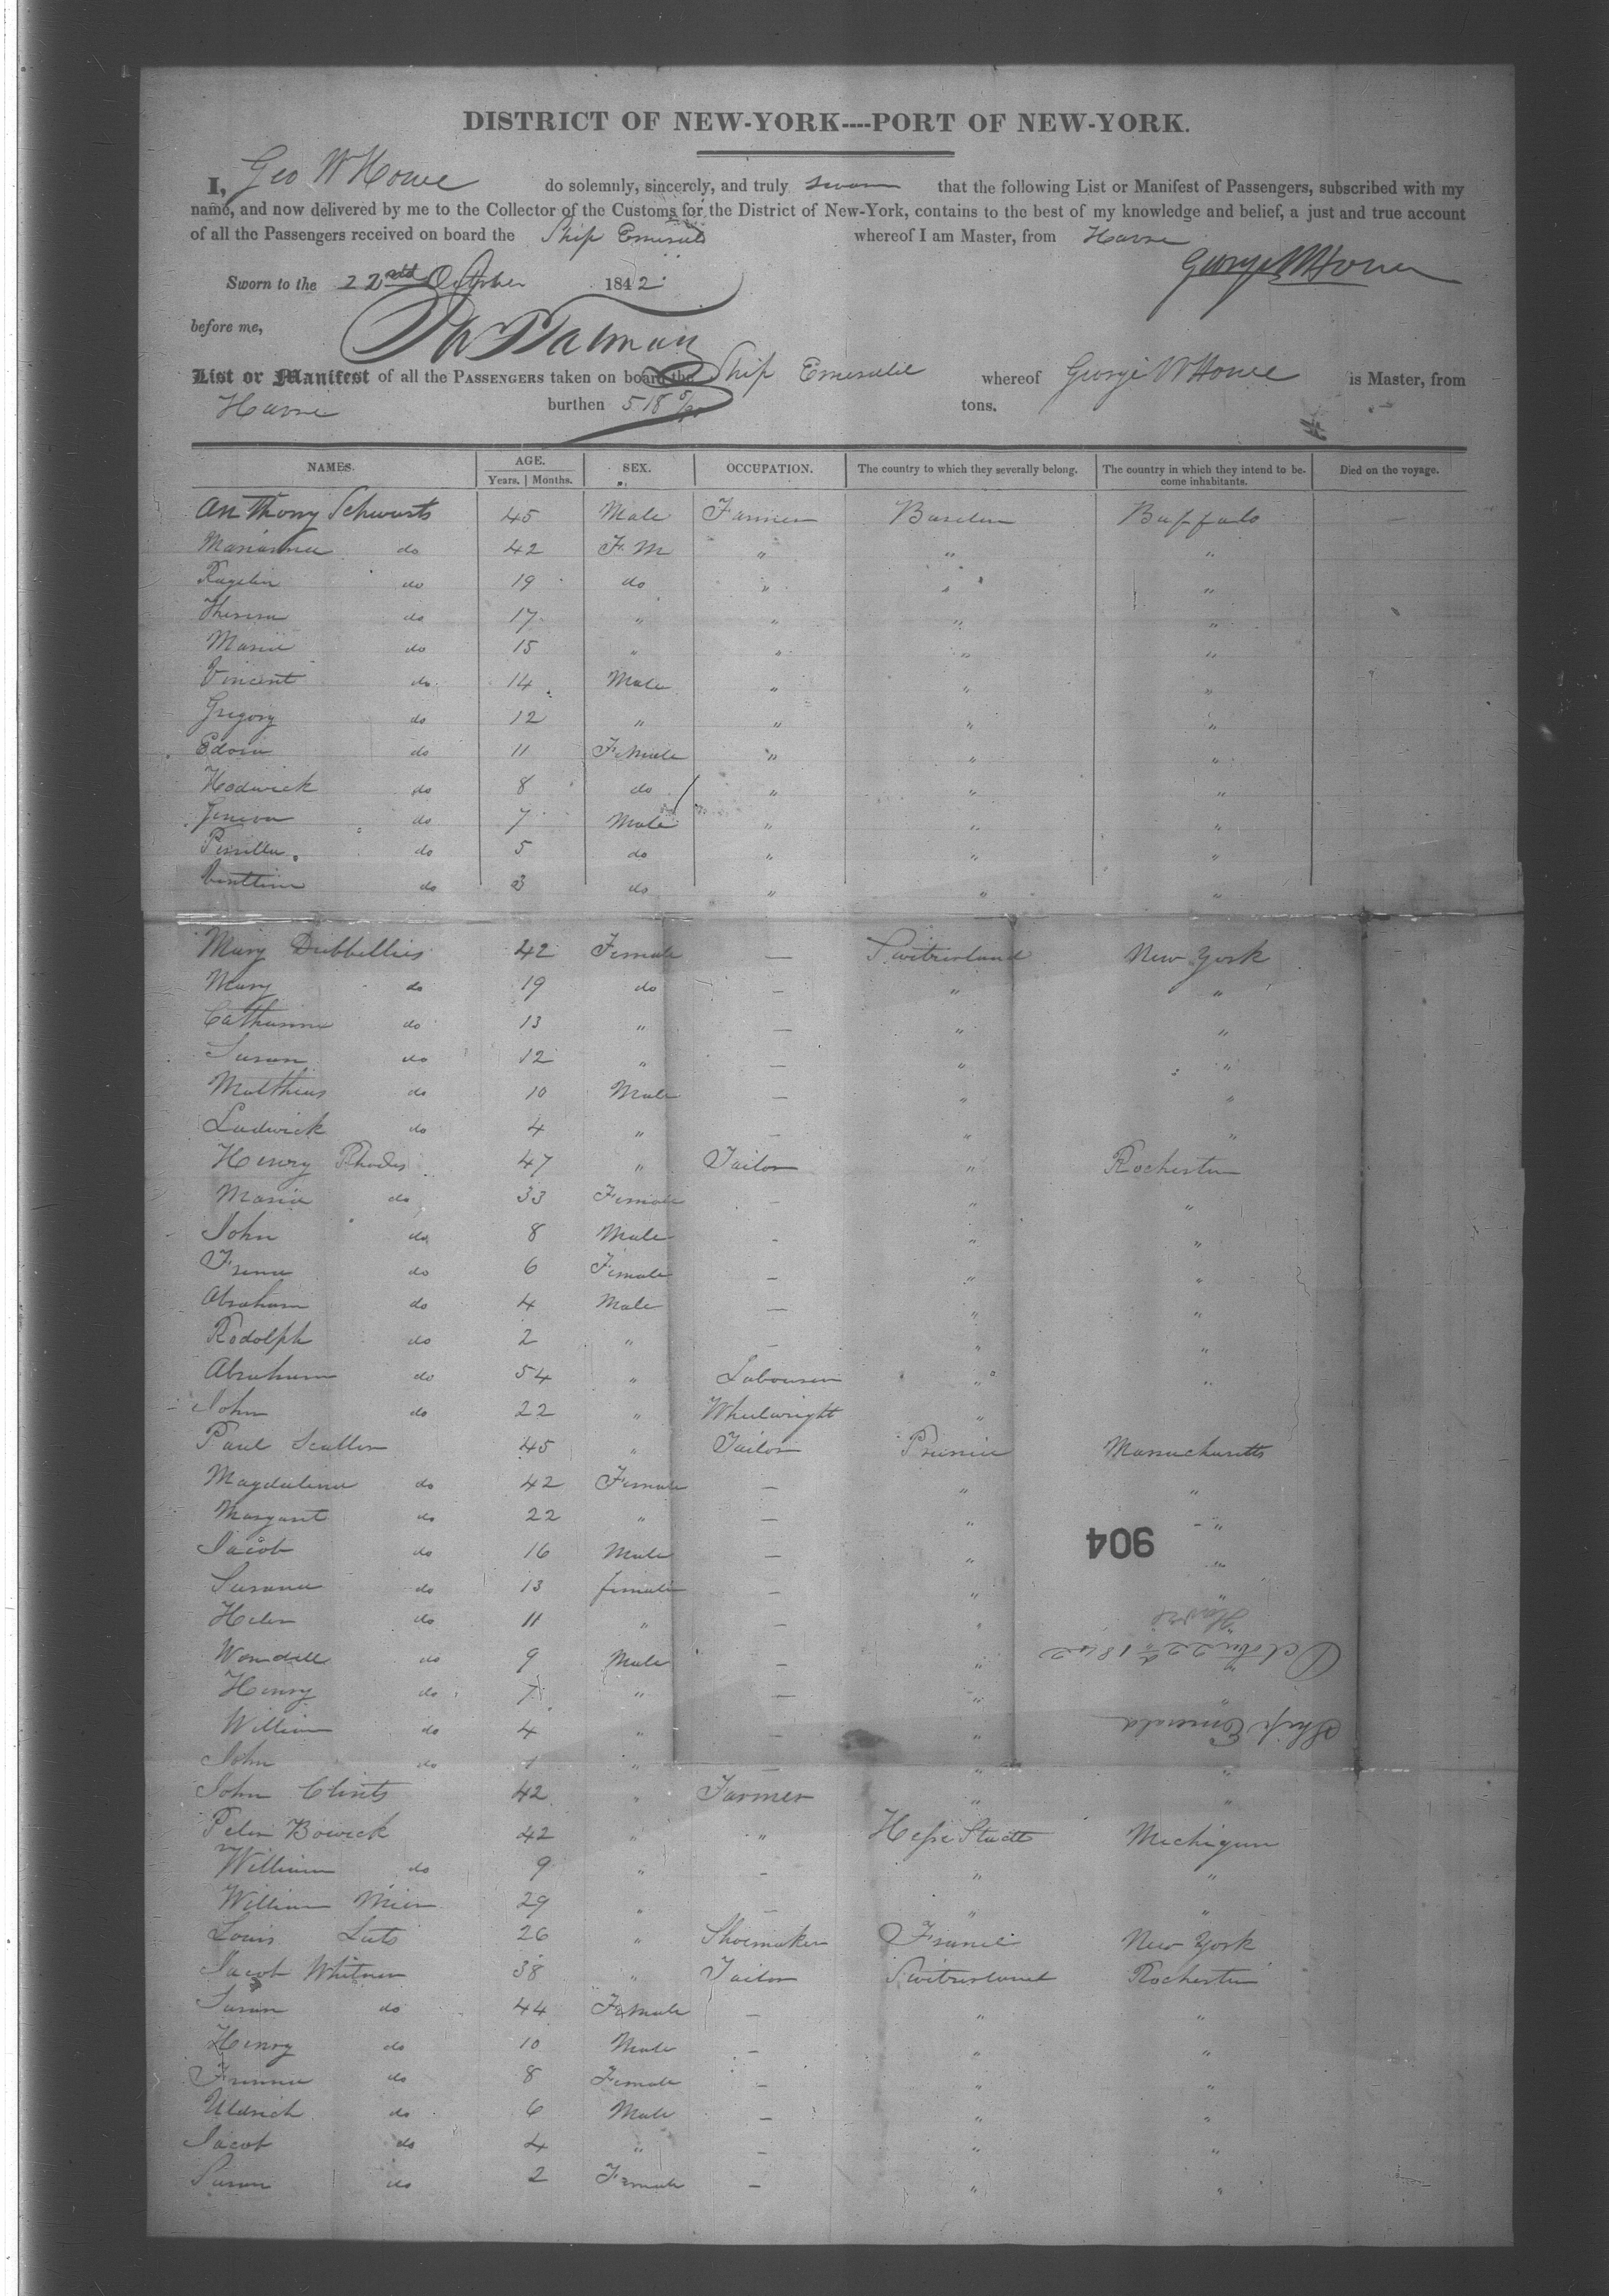 DISTRICT OF NEW-YORK----PORT OF NEW-YORK.
I, Geo W Howe do solemnly, sincerely, and truly swear that the following List or Manifest of Passengers, subscribed with my
name, and now delivered by me to the Collector of the Customs for the District of New-York, contains to the best of my knowledge and belief, a just and true account
of all the Passengers received on board the Ship Emerald whereof I am Master, from Havre
George W Howe
Sworn to the 22nd October 1842
before me,
List or Manifest of all the PASSENGERS taken on board the Ship Emerald whereof George W Howe is Master, from
Havre burthen 518 tons.
NAMES. AGE. Years. Months. SEX. OCCUPATION. The country to which they severally belong. The country in which they intend to become inhabitants. Died on the voyage.
Anthony Schwarts 45 Male Farmer Baden Buffalo
Marianna do 42 F.M " " "
do 19 do " " "
Theresa do 17 " " " "
Maria do 15 " " " "
Vincent do 14 Male " " "
Gregory do 12 " " " "
do 11 Female " " "
Hedwick do 8 do " " "
do 7 Male " " "
do 5 do " " "
do 3 do " " "
Mary 42 Female — Switzerland New York
Mary do 19 do — " "
Catharine do 13 " — " "
Susan do 12 " — " "
Matthias do 10 Male — " "
Ludwick do 4 " — " "
Henry Rhodes 47 " Tailor " Rochester
Maria do 33 Female — " "
John do 8 Male - " "
do 6 Female — " "
Abraham do 4 Male — " "
Rodolph do 2 " — " "
Abraham do 54 " Labourer " "
John do 22 " Wheelwright "
Paul 45 " Tailor Prussia Massachusetts
Magdalena do 42 Female — " "
Margaret do 22 " — " "
Jacob do 16 Male — " "
904
Susana do 13 female — " "
Helen do 11 " — "
Havre
Wendell do 9 Male — "
October 22nd 1842
Henry do 7 " — " "
William do 4 " — "
Ship Emerald
John do 1 " — " "
John Clints 42 " Farmer " "
Peter Bowick 42 " " Hesse Stadt Michigan
William do 9 " - " "
William Mier 29 " — " "
Louis Luts 26 " Shoemaker France New York
Jacob Whitner 38 " Tailor Switzerland Rochester
Susan do 44 Female — " "
Henry do 10 Male — " "
do 8 Female — " "
Uldrich do 6 Male — " "
Jacob do 4 " — " "
Susan do 2 Female — " "